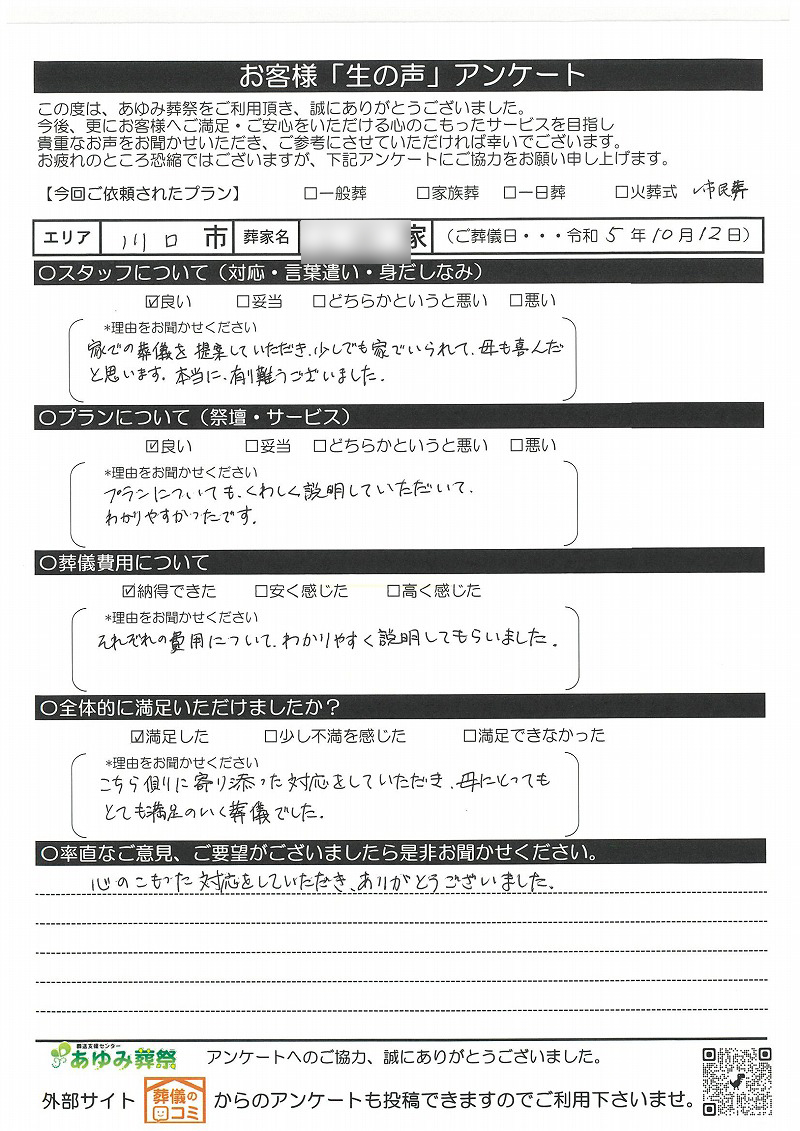 お客様「生の声」アンケート
この度は、あゆみ葬祭をご利用頂き、誠にありがとうございました。
今後、更にお客様へご満足・ご安心をいただける心のこもったサービスを目指し
貴重なお声をお聞かせいただき、ご参考にさせていただければ幸いでございます。
お疲れのところ恐縮ではございますが、下記アンケートにご協力をお願い申し上げます。
【今回ご依頼されたプラン】 □一般葬 □家族葬 □一日葬 □火葬式 ✓市民葬
エリア 川口 市 葬家名 家 （ご葬儀日・・・令和 5 年 10 月 12 日）
○スタッフについて（対応・言葉遣い・身だしなみ）
☑良い □妥当 □どちらかというと悪い □悪い
*理由をお聞かせください
家での葬儀を提案していただき、少しでも家でいられて、母も喜んだ
と思います。本当に、有り難うございました。
○プランについて（祭壇・サービス）
☑良い □妥当 □どちらかというと悪い □悪い
*理由をお聞かせください
プランについても、くわしく説明していただいて、
わかりやすかったです。
○葬儀費用について
☑納得できた □安く感じた □高く感じた
*理由をお聞かせください
それぞれの費用について、わかりやすく説明してもらいました。
○全体的に満足いただけましたか？
☑満足した □少し不満を感じた □満足できなかった
*理由をお聞かせください
こちら側に寄り添った対応をしていただき、母にとっても
とても満足のいく葬儀でした。
○率直なご意見、ご要望がございましたら是非お聞かせください。
心のこもった対応をしていただき、ありがとうございました。
葬送支援センター
あゆみ葬祭 アンケートへのご協力、誠にありがとうございました。
外部サイト 葬儀の口コミ からのアンケートも投稿できますのでご利用下さいませ。